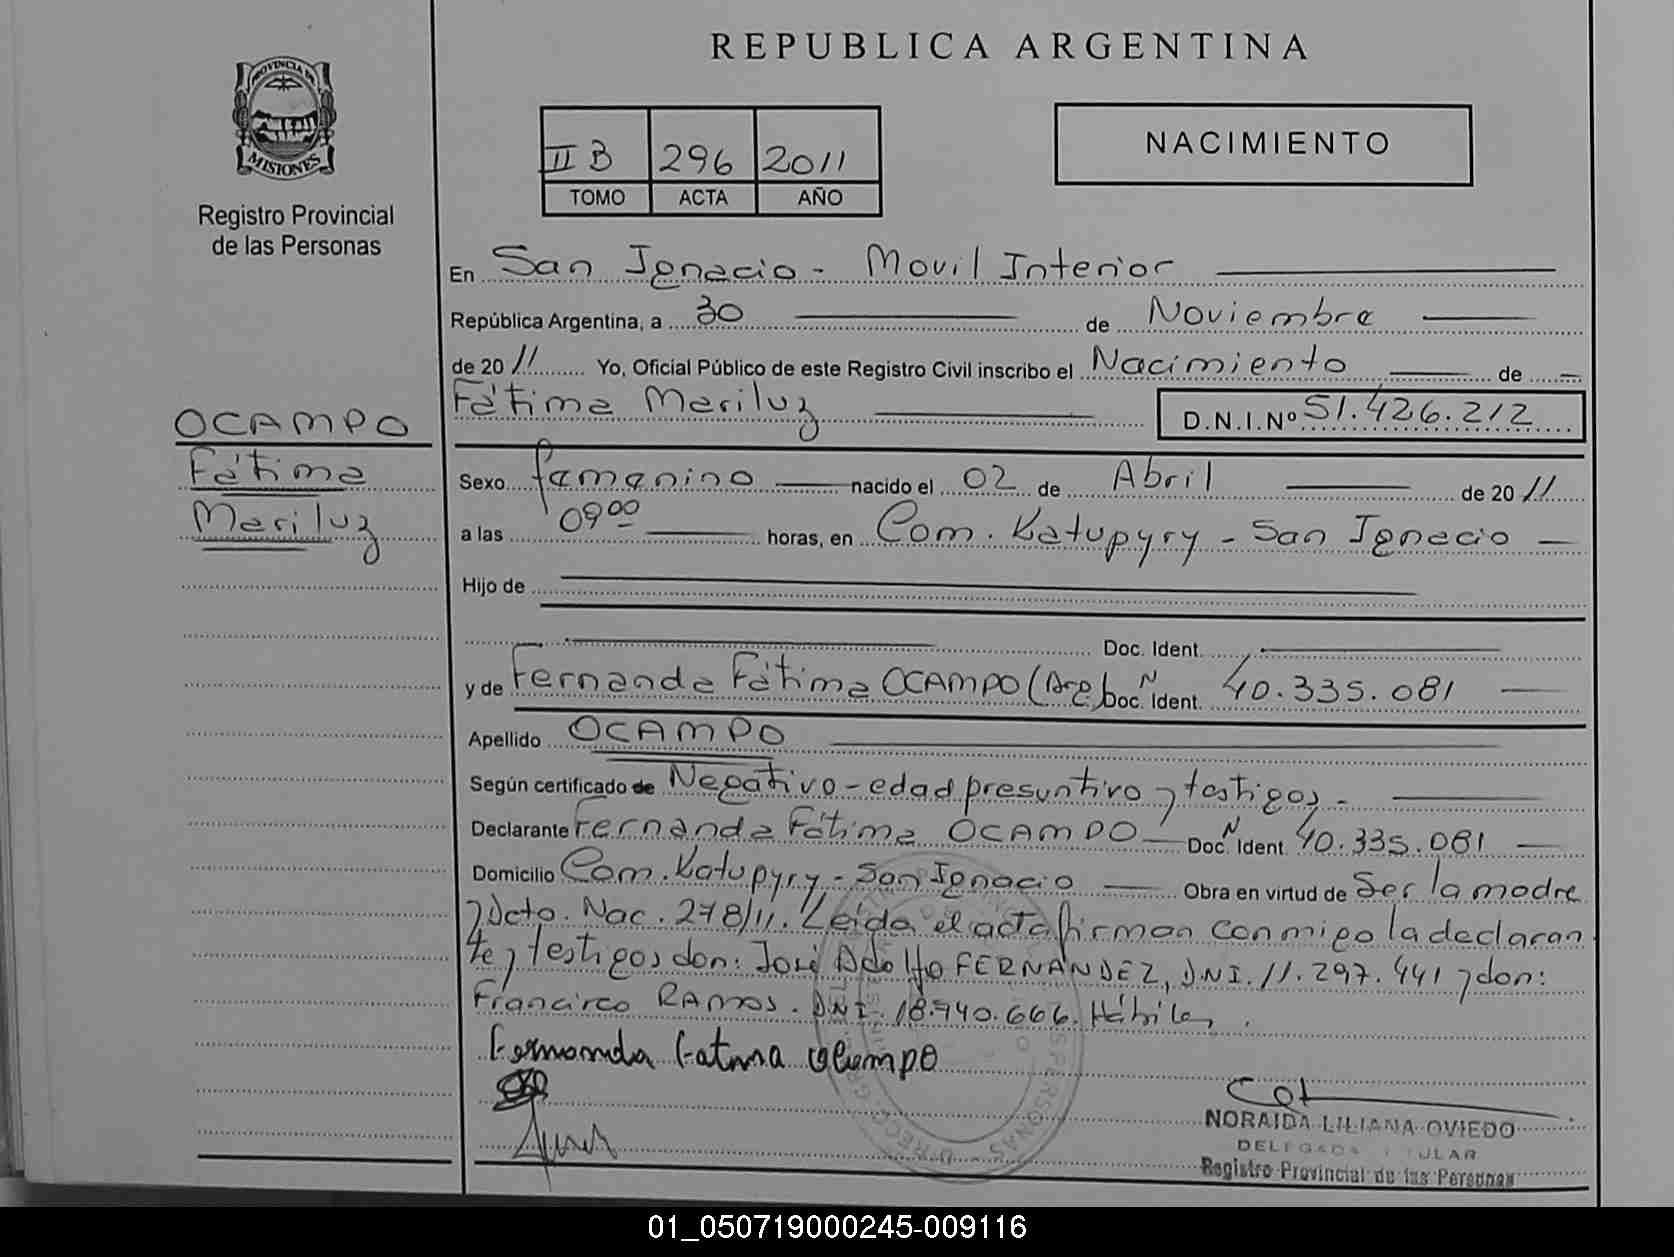 REPUBLICA ARGENTINA
PROVINCIA DE MISIONES
Registro Provincial
de las Personas
II B 296 2011
TOMO ACTA AÑO
NACIMIENTO
En San Ignacio - Movil Interior
República Argentina, a 30 de Noviembre
de 2011 Yo, Oficial Público de este Registro Civil inscribo el Nacimiento de
Fátima Mariluz D.N.I.Nº 51.426.212
OCAMPO
Fátima
Mariluz
Sexo famanino nacido el 02 de Abril de 2011
a las 09 00 horas, en Com. Katupyry - San Ignacio
Hijo de
Doc. Ident.
y de Fernanda Fátima OCAMPO (Arg) Doc. N Ident. 40.335.081
Apellido OCAMPO
Según certificado de Negativo - edad presuntivo y testigos.
Declarante Fernanda Fátima OCAMPO Doc. N Ident. 40.335.081
Domicilio Com. Katupyry - San Ignacio Obra en virtud de Ser la madre
y Dcto. Nac. 278/11. Leída el acta firman conmigo la declaran
te y testigos don: José Adolfo FERNANDEZ, DNI. 11.297.441 y don:
Francisco RAMOS. DNI. 18.940.666. Hábiles.
Fernanda Fatima Ocampo
NORAIDA LILIANA OVIEDO
DELEGADA TITULAR
Registro Provincial de las Personas
01_050719000245-009116